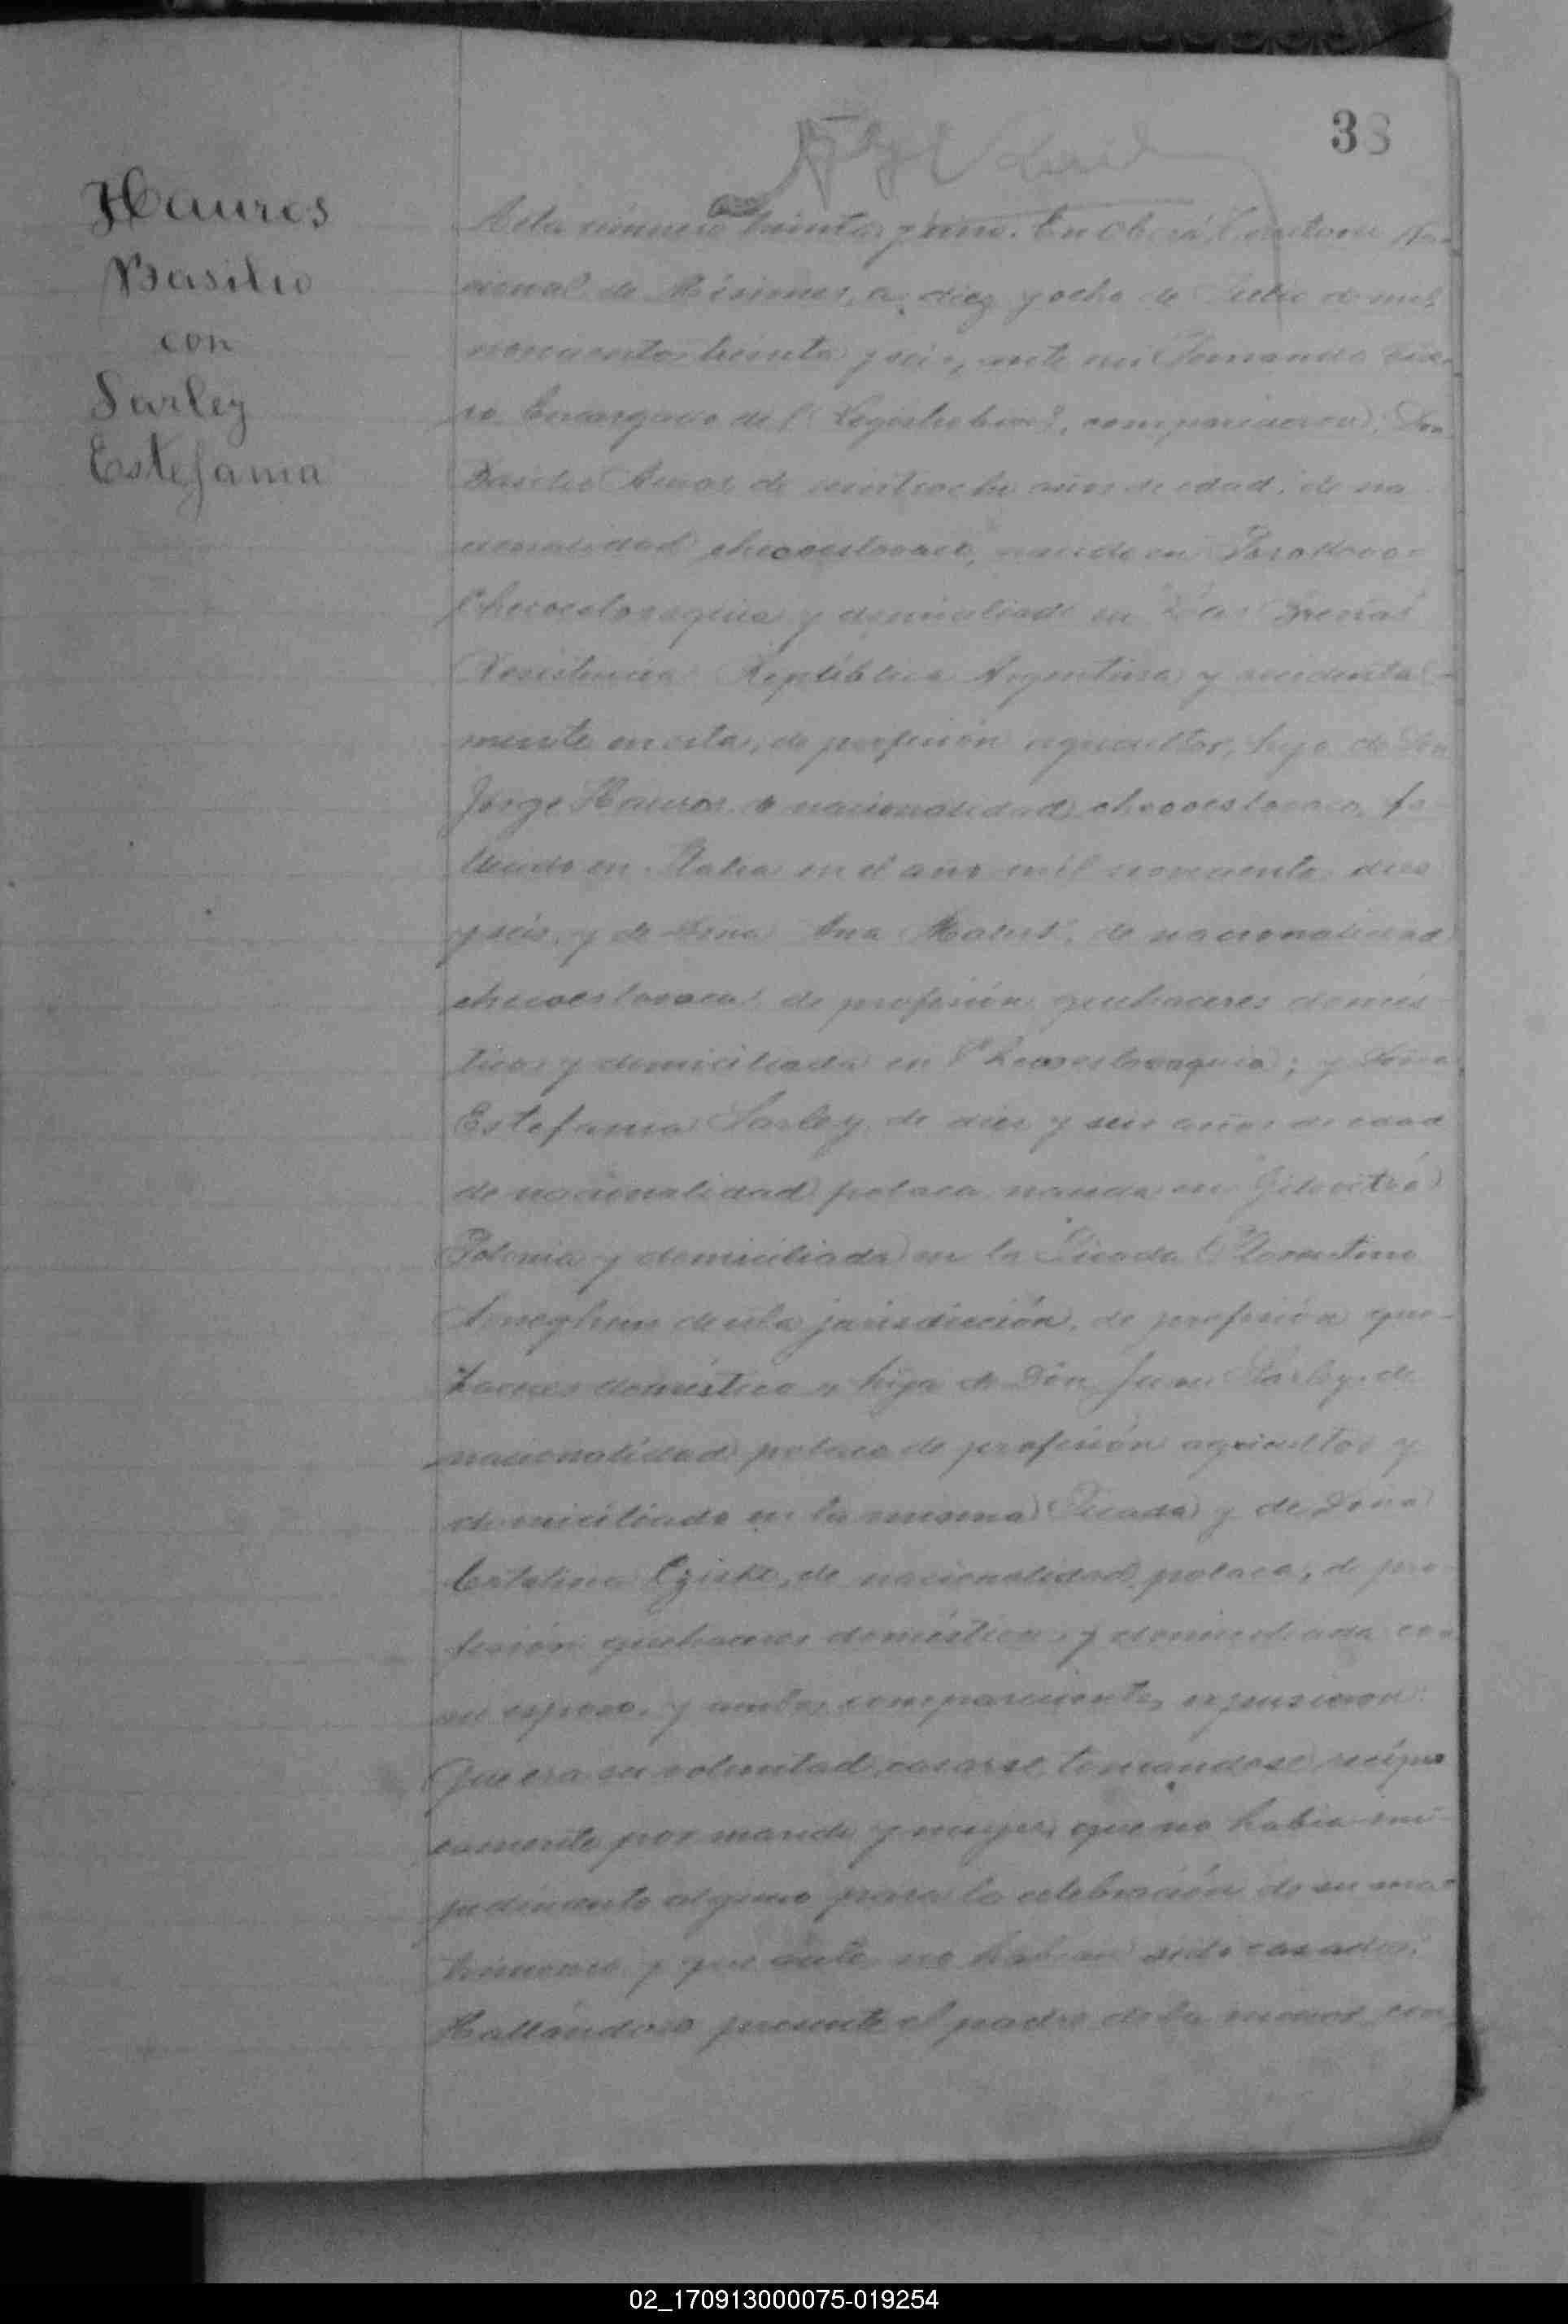 38
Haures
Basilio
con
Sarley
Estefania
Acta número treinta y uno. En Oberá, Territorio Na-
cional de Misiones, a diez y ocho de Julio de mil
novecientos treinta y seis, ante mi Fernando
Encargado del Registro Civil, comparecieron: Don
Basilio de veintiocho años de edad, de na-
cionalidad checoeslovaco, nacido en
Checoeslovaquia y domiciliado en
Resistencia República Argentina y accidental-
mente en esta, de profesión agricultor, hijo de Don
Jorge Hauros nacionalidad checoeslovaco, fa-
llecido en Italia en el año mil novecientos diez
y seis, y de Doña Ana de nacionalidad
checoeslovaca, de profesión quehaceres domés-
ticos y domiciliada en Checoeslovaquia; y Doña
Estefania Sarley de diez y seis años de edad
de nacionalidad polaca nacida en
Polonia y domiciliada en la Picada
de esta jurisdicción, de profesión que-
haceres domésticos hija de Don Juan Sarley, de
nacionalidad polaca de profesión agricultor y
domiciliado en la misma Picada y de Doña
Catalina de nacionalidad polaca, de pro-
fesión quehaceres domésticos y domiciliada con
su esposo, y ambos comparecientes expusieron:
Que era su voluntad casarse, tomandose recipro
camente por marido y mujer, que no habia im-
pedimento alguno para la celebración de su ma-
trimonio y que antes no habian sido casados.
Hallándose presente el padre de la menor con
02_170913000075-019254